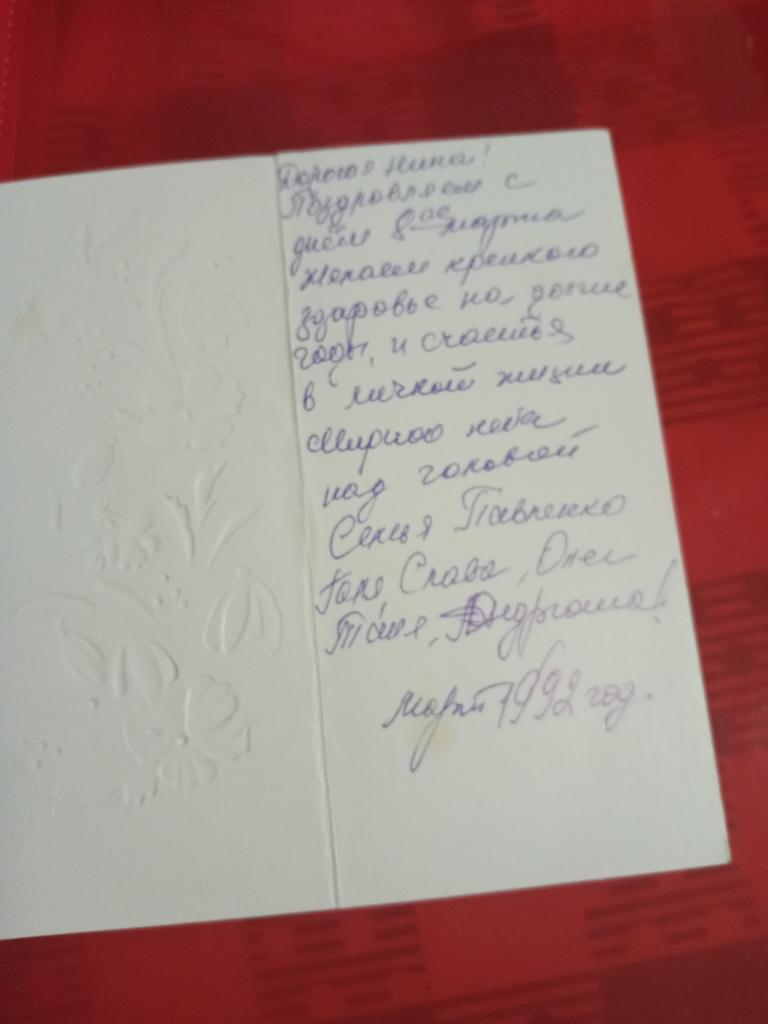 Дорогая Нина!
Поздравляем с
днём 8ое марта
желаем крепкого
здаровье на долгие
годы, и счастья
в личной жизни
Мирного неба
над головой
Семья Павленко
Галя Слава, Олег
Таня, Андрюша!
март 1992 год.